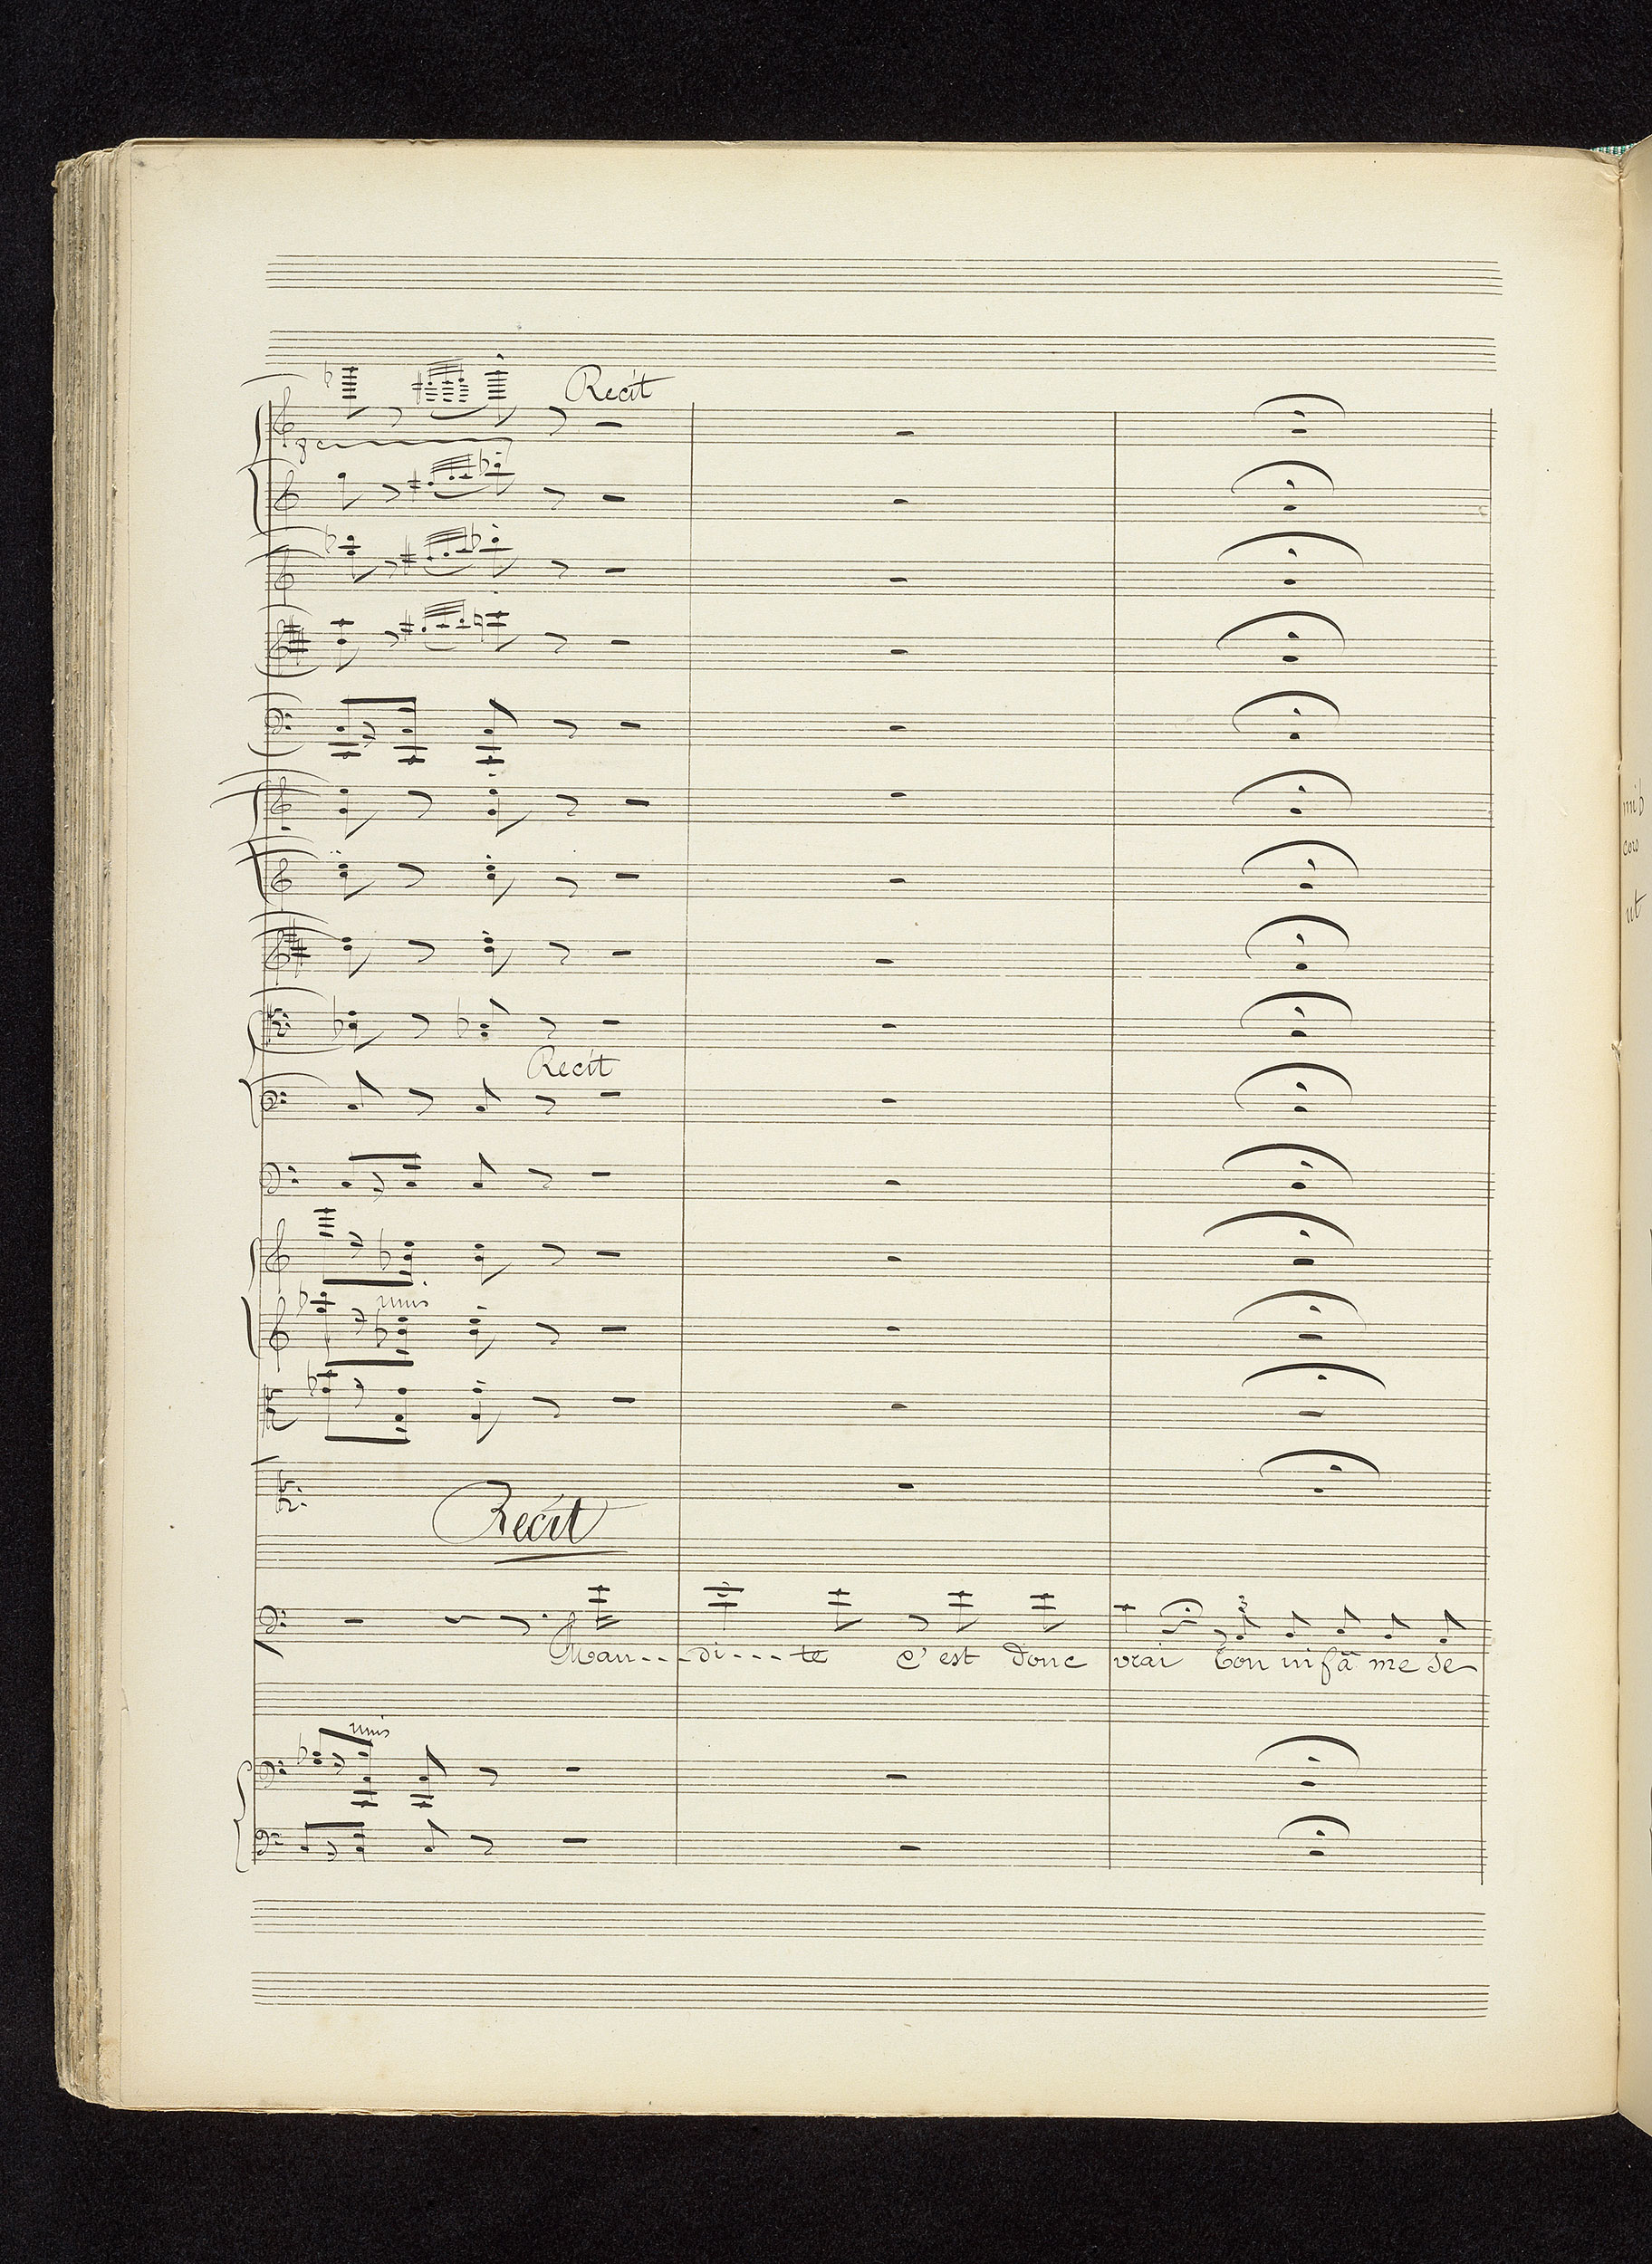 Recit
8a
Recit
unis
Recit
Mau---di---te c'est donc vrai ton infâ me se
unis
mib
cors
ut